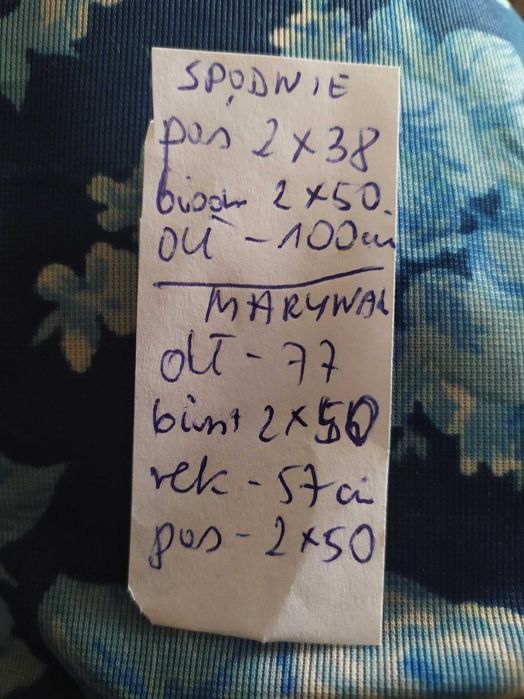 SPODNIE
pas 2 x 38
biodr 2 x 50
dł - 100 cm
MARYNAR
dł - 77
biust 2 x 50
ręk - 57 cm
pas - 2 x 50